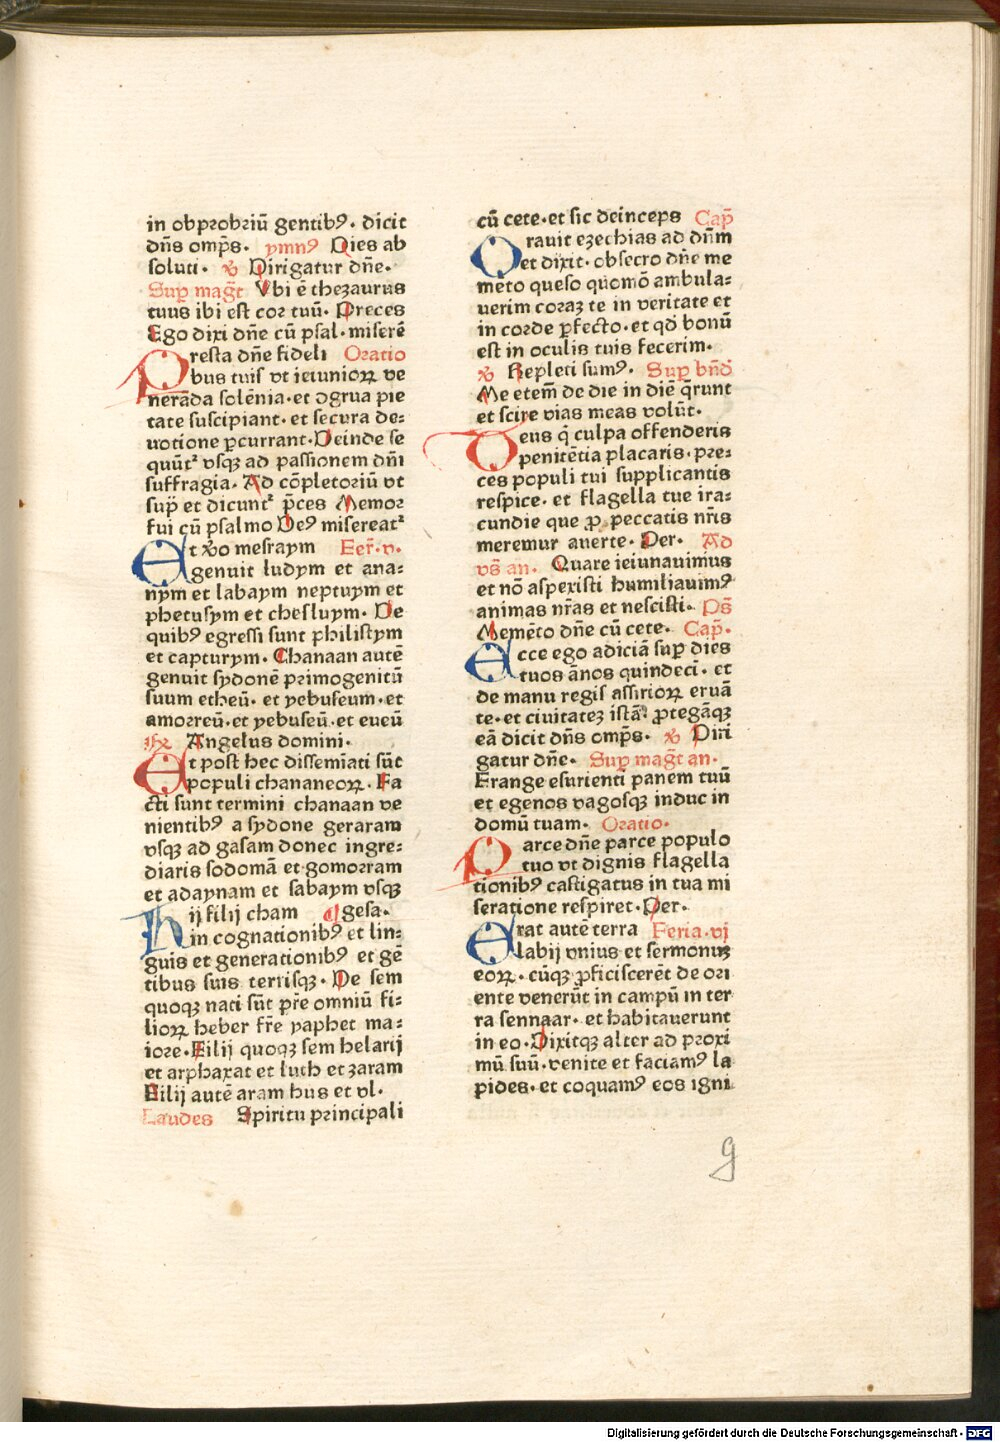 in obprobriū gentibꝰ. dicit
dn̄s omp̄s. ymnꝰ Dies ab
soluti. ꝟ Dirigatur dn̄e.
Suꝑ maḡt Ubi ē thezaurus
tuus ibi est cor tuū. Preces
Ego dixi dn̄e cū psal. miserē
Presta dn̄e fideli Oratio
bus tuis vt ieiunioꝝ ve
neranda solēnia. et ꝯgrua pie
tate suscipiant. et secura de⸗
uotione ꝑcurrant. Deinde se
quūt᷑ vsqꝫ ad passionem dn̄i
suffragia. Ad cōpletoriū vt
sup̄ et dicunt᷑ p̄ces Memor
fui cū psalmo Deꝰ misereat᷑
At ꝟo mesraym Fer̄. v.
genuit ludym et ana⸗
nym et labaym neptuym et
phetusym et chesluym. De
quibꝰ egressi sunt philistym
et capturym. Chanaan autē
genuit sydonē primogenitū
suum etheū. et yebuseum. et
amorreū. et yebuseū. et eueū
Angelus domini.
Et post hec dissemīati sūt
populi chananeoꝝ. Fa
cti sunt termini chanaan ve
nientibꝰ a sydone geraram
vsqꝫ ad gasam donec ingre⸗
diaris sodomā et gomorram
et adaynam et sabaym vsqꝫ
Hij filij cham ¶ gesa.
in cognationibꝰ et lin⸗
guis et generationibꝰ et gē
tibus suis terrisqꝫ. De sem
quoqꝫ nati sūt pr̄e omniū fi⸗
lioꝝ heber fr̄e yaphet ma⸗
iore. Filij quoqꝫ sem helarij
et arphaxat et luth et zaram
Filij autē aram hus et vl.
Laudes Spiritu principali
cū cete. et sic deinceps Cap̄
Orauit ezechias ad dn̄m
et dixit. obsecro dn̄e me
mēto queso quomō ambula⸗
uerim coraꝫ te in veritate et
in corde ꝑfecto. et qđ bonū
est in oculis tuis fecerim.
ꝟ Repleti sumꝰ. Suꝑ bn̄d
Me etem̄ de die in diē q̄runt
et scire vias meas volūt.
Deus q̄ culpa offenderis
penitētia placaris. pre⸗
ces populi tui supplicantis
respice. et flagella tue ira⸗
cundie que ꝓ peccatis nr̄is
meremur auerte. Per. Ad
vs̄ an. Quare ieiunauimus
et nō aspexisti humiliauimꝰ
animas nr̄as et nescisti. Ps̄
Memēto dn̄e cū cete. Cap̄.
Ecce ego adiciā suꝑ dies
tuos ānos quindecī. et
de manu regis assirioꝝ eruā
te. et ciuitateꝫ istā. ꝓtegāqꝫ
eā dicit dn̄s omp̄s. ꝟ Diri
gatur dn̄e. Suꝑ maḡt an.
Frange esurienti panem tuū
et egenos vagosqꝫ induc in
domū tuam. Oratio.
Parce dn̄e parce populo
tuo vt dignis flagella
tionibꝰ castigatus in tua mi
seratione respiret. Per.
Erat autē terra Feria. vj
labij vnius et sermonuꝫ
eoꝝ. cūqꝫ ꝓficiscerēt de ori
ente venerūt in campū in ter
ra sennaar. et habitauerunt
in eo. Dixitqꝫ alter ad proxi
mū suū. venite et faciamꝰ la
pides. et coquamꝰ eos igni
g
Digitalisierung gefördert durch die Deutsche Forschungsgemeinschaft - DFG